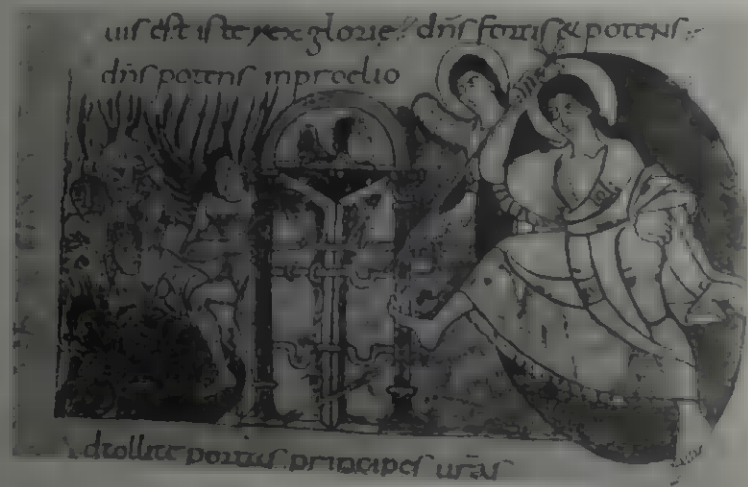 uis est iste rex glorie dñs fortis & potens
dñs potens inproelio
dtollite portas principes urãs